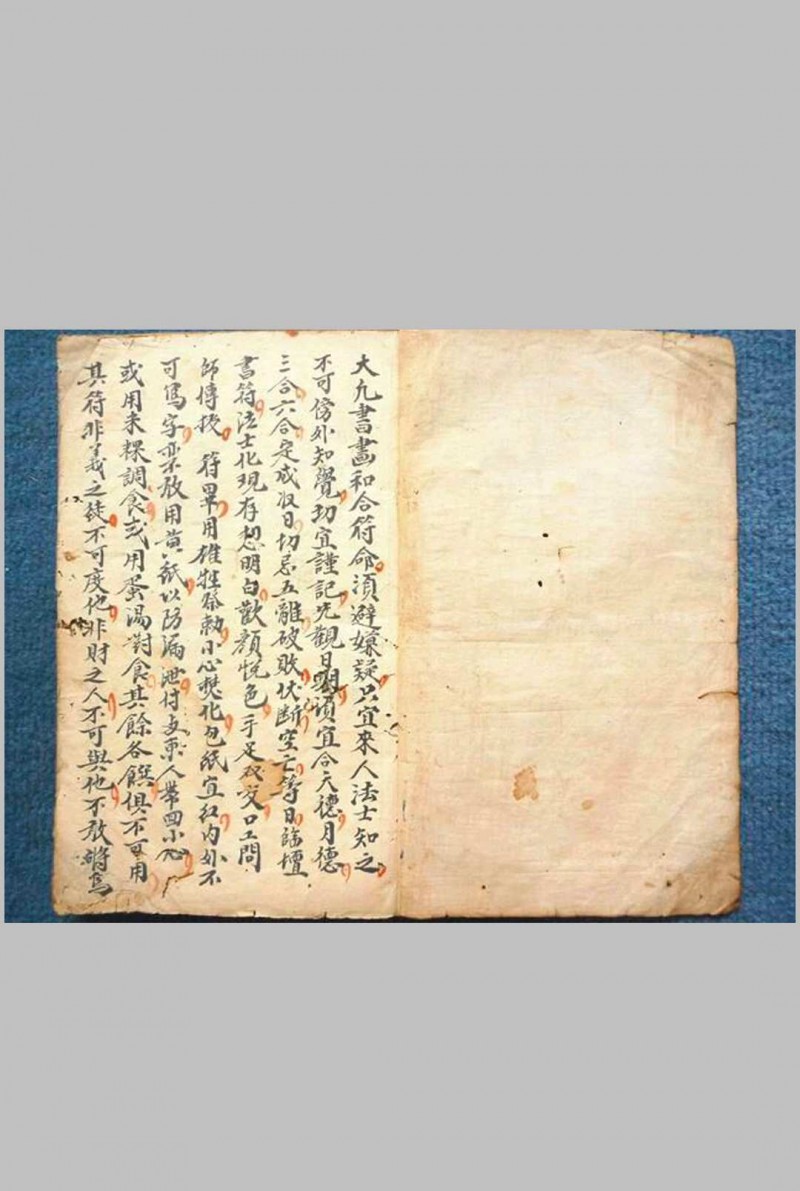 大凡書畫和合符命須避嫌疑只宜來人法士知之
不可傍外知覺切宜謹記先觀日期須宜合天德月德
三合六合定成收日切忌五離破敗伏斷空亡等日臨壇
書符法士化現存想明白歡顏悅色手足双交口工問
師傳教符畢用雄牲祭勅小心焚化包紙宜紅内外不
可寫字亦不敢用黄紙以防漏泄付交東人帶回小心
或用米粿調食或用蛋湯對食其餘各饌俱不可用
其符非義之徒不可度他非財之人不可與他不敢